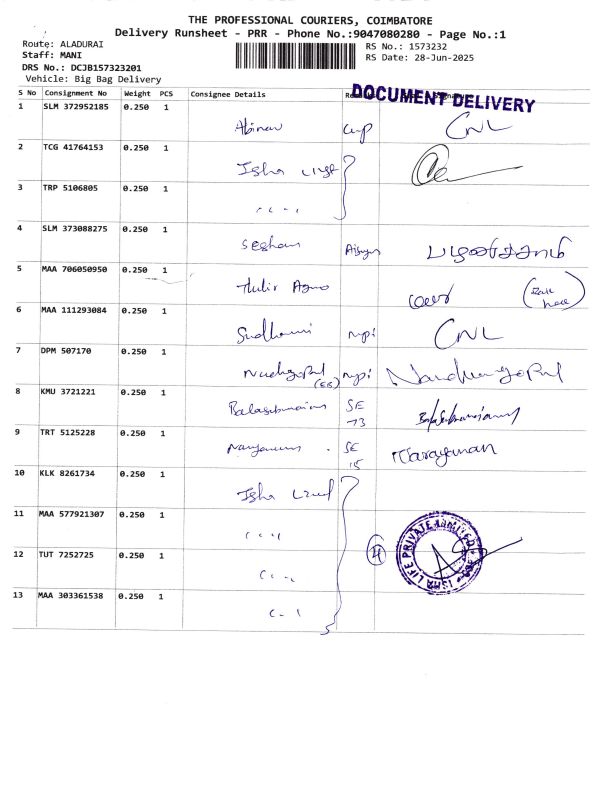 THE PROFESSIONAL COURIERS, COIMBATORE
Delivery Runsheet - PRR - Phone No.:9047080280 - Page No.:1
Route: ALADURAI
RS No.: 1573232
Staff: MANI
RS Date: 28-Jun-2025
DRS No.: DCJB157323201
Vehicle: Big Bag Delivery
S No Consignment No Weight PCS Consignee Details
DOCUMENT DELIVERY
1 SLM 372952185 0.250 1
CNL
2 TCG 41764153 0.250 1 Isha
3 TRP 5106805 0.250 1
4 SLM 373088275 0.250 1
5 MAA 706050950 0.250 1
6 MAA 111293084 0.250 1
CNL
7 DPM 507170 0.250 1
Nandhagopal
8 KMU 3721221 0.250 1
Balasubramaniam SE 73
9 TRT 5125228 0.250 1
SE 15 Narayanan
10 KLK 8261734 0.250 1
Isha
11 MAA 577921307 0.250 1
12 TUT 7252725 0.250 1 4
ISHA LIFE PRIVATE LIMITED
13 MAA 303361538 0.250 1